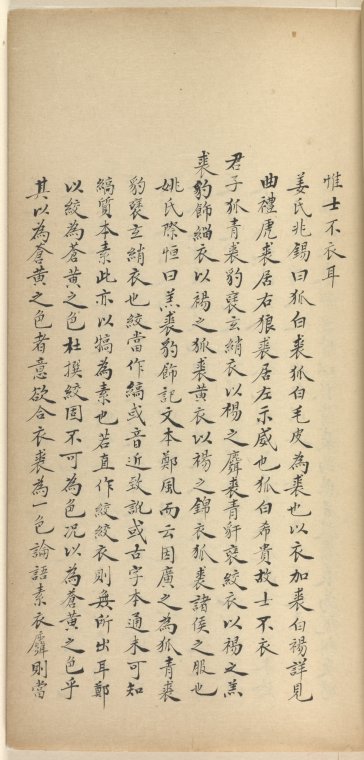 惟士不衣耳
姜氏兆錫曰狐白裘狐白毛皮為裘也以衣加裘曰裼詳見
曲禮虎裘居右狼裘居左示威也狐白希貴故士不衣
君子狐青裘豹褎玄綃衣以裼之麛裘青豻褎絞衣以裼之羔
裘豹飾緇衣以裼之狐裘黃衣以裼之錦衣狐裘諸侯之服也
姚氏際恒曰羔裘豹飾記文本鄭風而云因廣之為狐青裘
豹褎玄綃衣也絞當作縞或音近致訛或古字本通未可知
縞質本素此亦以犒為素也若直作絞絞衣則無所出耳鄭
以絞為蒼黃之色杜撰絞固不可為色况以為蒼黃之色乎
其以為蒼黃之色者意欲合衣裘為一色論語素衣麑則當